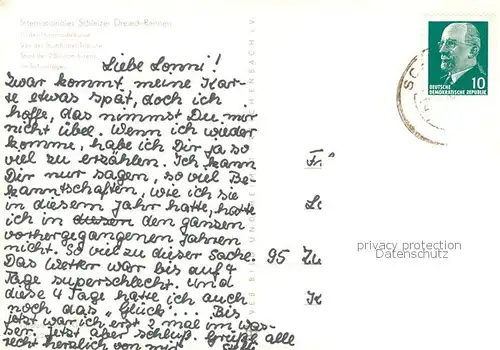 Internationales Schleizer Dreieck-Rennen
Liebe Lonni!
Zwar kommt meine Kar-
te etwas spät, doch ich
hoffe, das nimmst Du mir
nicht übel. Wenn ich wieder
komme, habe ich Dir ja so
viel zu erzählen. Ich kann
Dir nur sagen, so viel Be-
kanntschaften, wie ich sie
in diesem Jahr hatte, hatte
ich in diesen den ganzen
vorhergegangenen Jahren
nicht. So viel zu dieser Sache.
Das Wetter war bis auf 4
Tage superschlecht. Und
diese 4 Tage hatte ich auch
noch das "Glück"... Bis
jetzt war ich erst 2 mal im was-
ser. Jetzt aber schluß. Grüße alle
recht herzlich von mir
10
DEUTSCHE
DEMOKRATISCHE REPUBLIK
SC
Fr
Le
95 Zu
privacy protection
Datenschutz